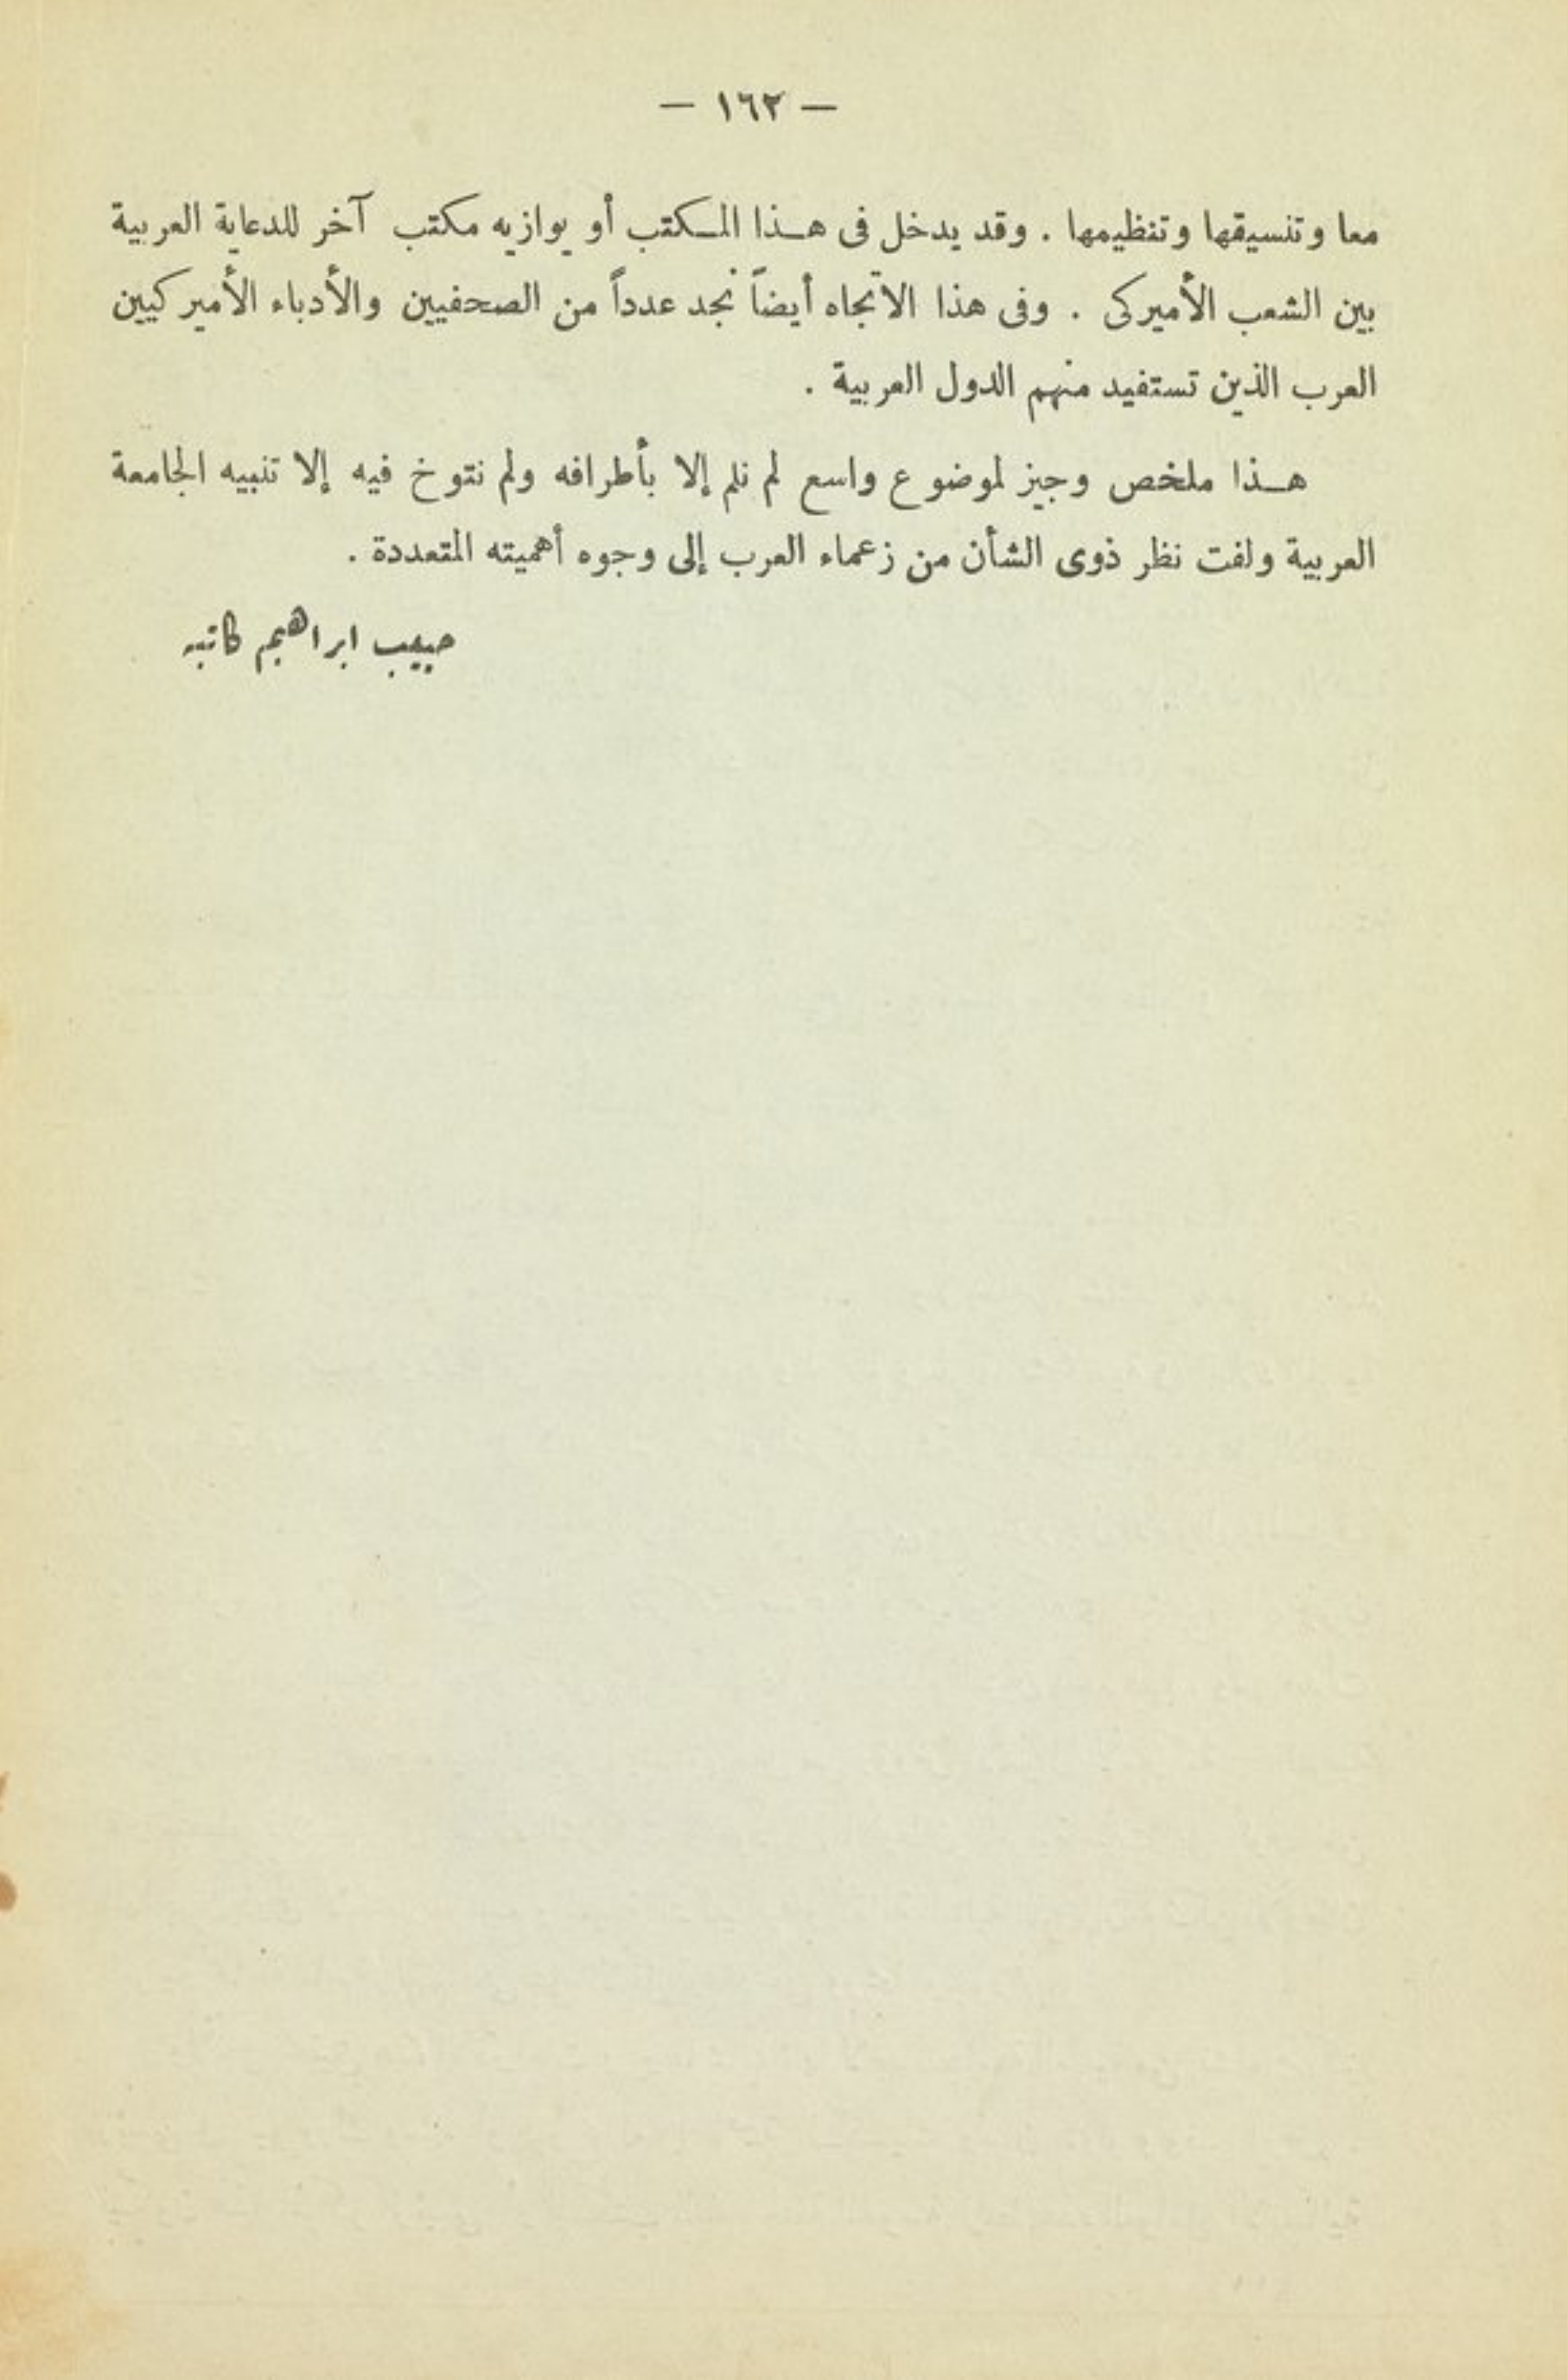 — ١٦٢ —
معا وتنسيقها وتنظيمها . وقد يدخل فى هـذا المـكتب أو يوازيه مكتب آخر للدعاية العربية
بين الشعب الأميركى . وفى هذا الاتجاه أيضاً نجد عدداً من الصحفيين والأدباء الأميركيين
العرب الذين تستفيد منهم الدول العربية .
هـذا ملخص وجيز لموضوع واسع لم نلم إلا بأطرافه ولم نتوخ فيه إلا تنبيه الجامعة
العربية ولفت نظر ذوى الشأن من زعماء العرب إلى وجوه أهميته المتعددة .
حبيب ابراهيم كاتبه